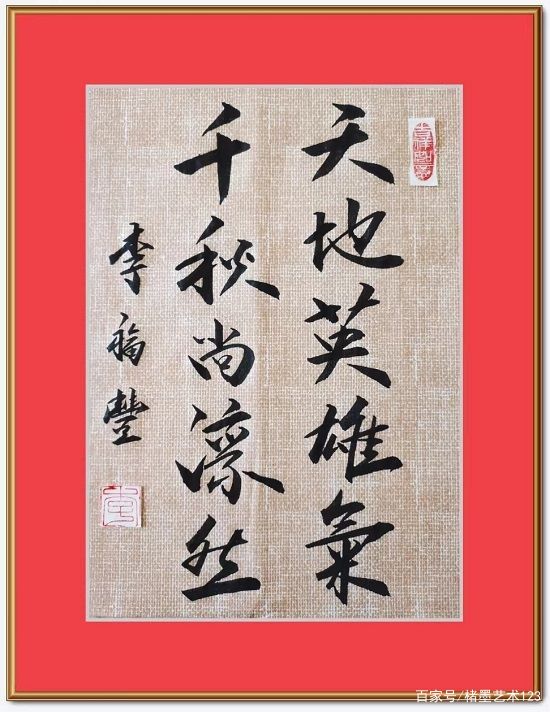 天地英雄氣
千秋尚凛然
李福豐
百家号/楮墨艺术123